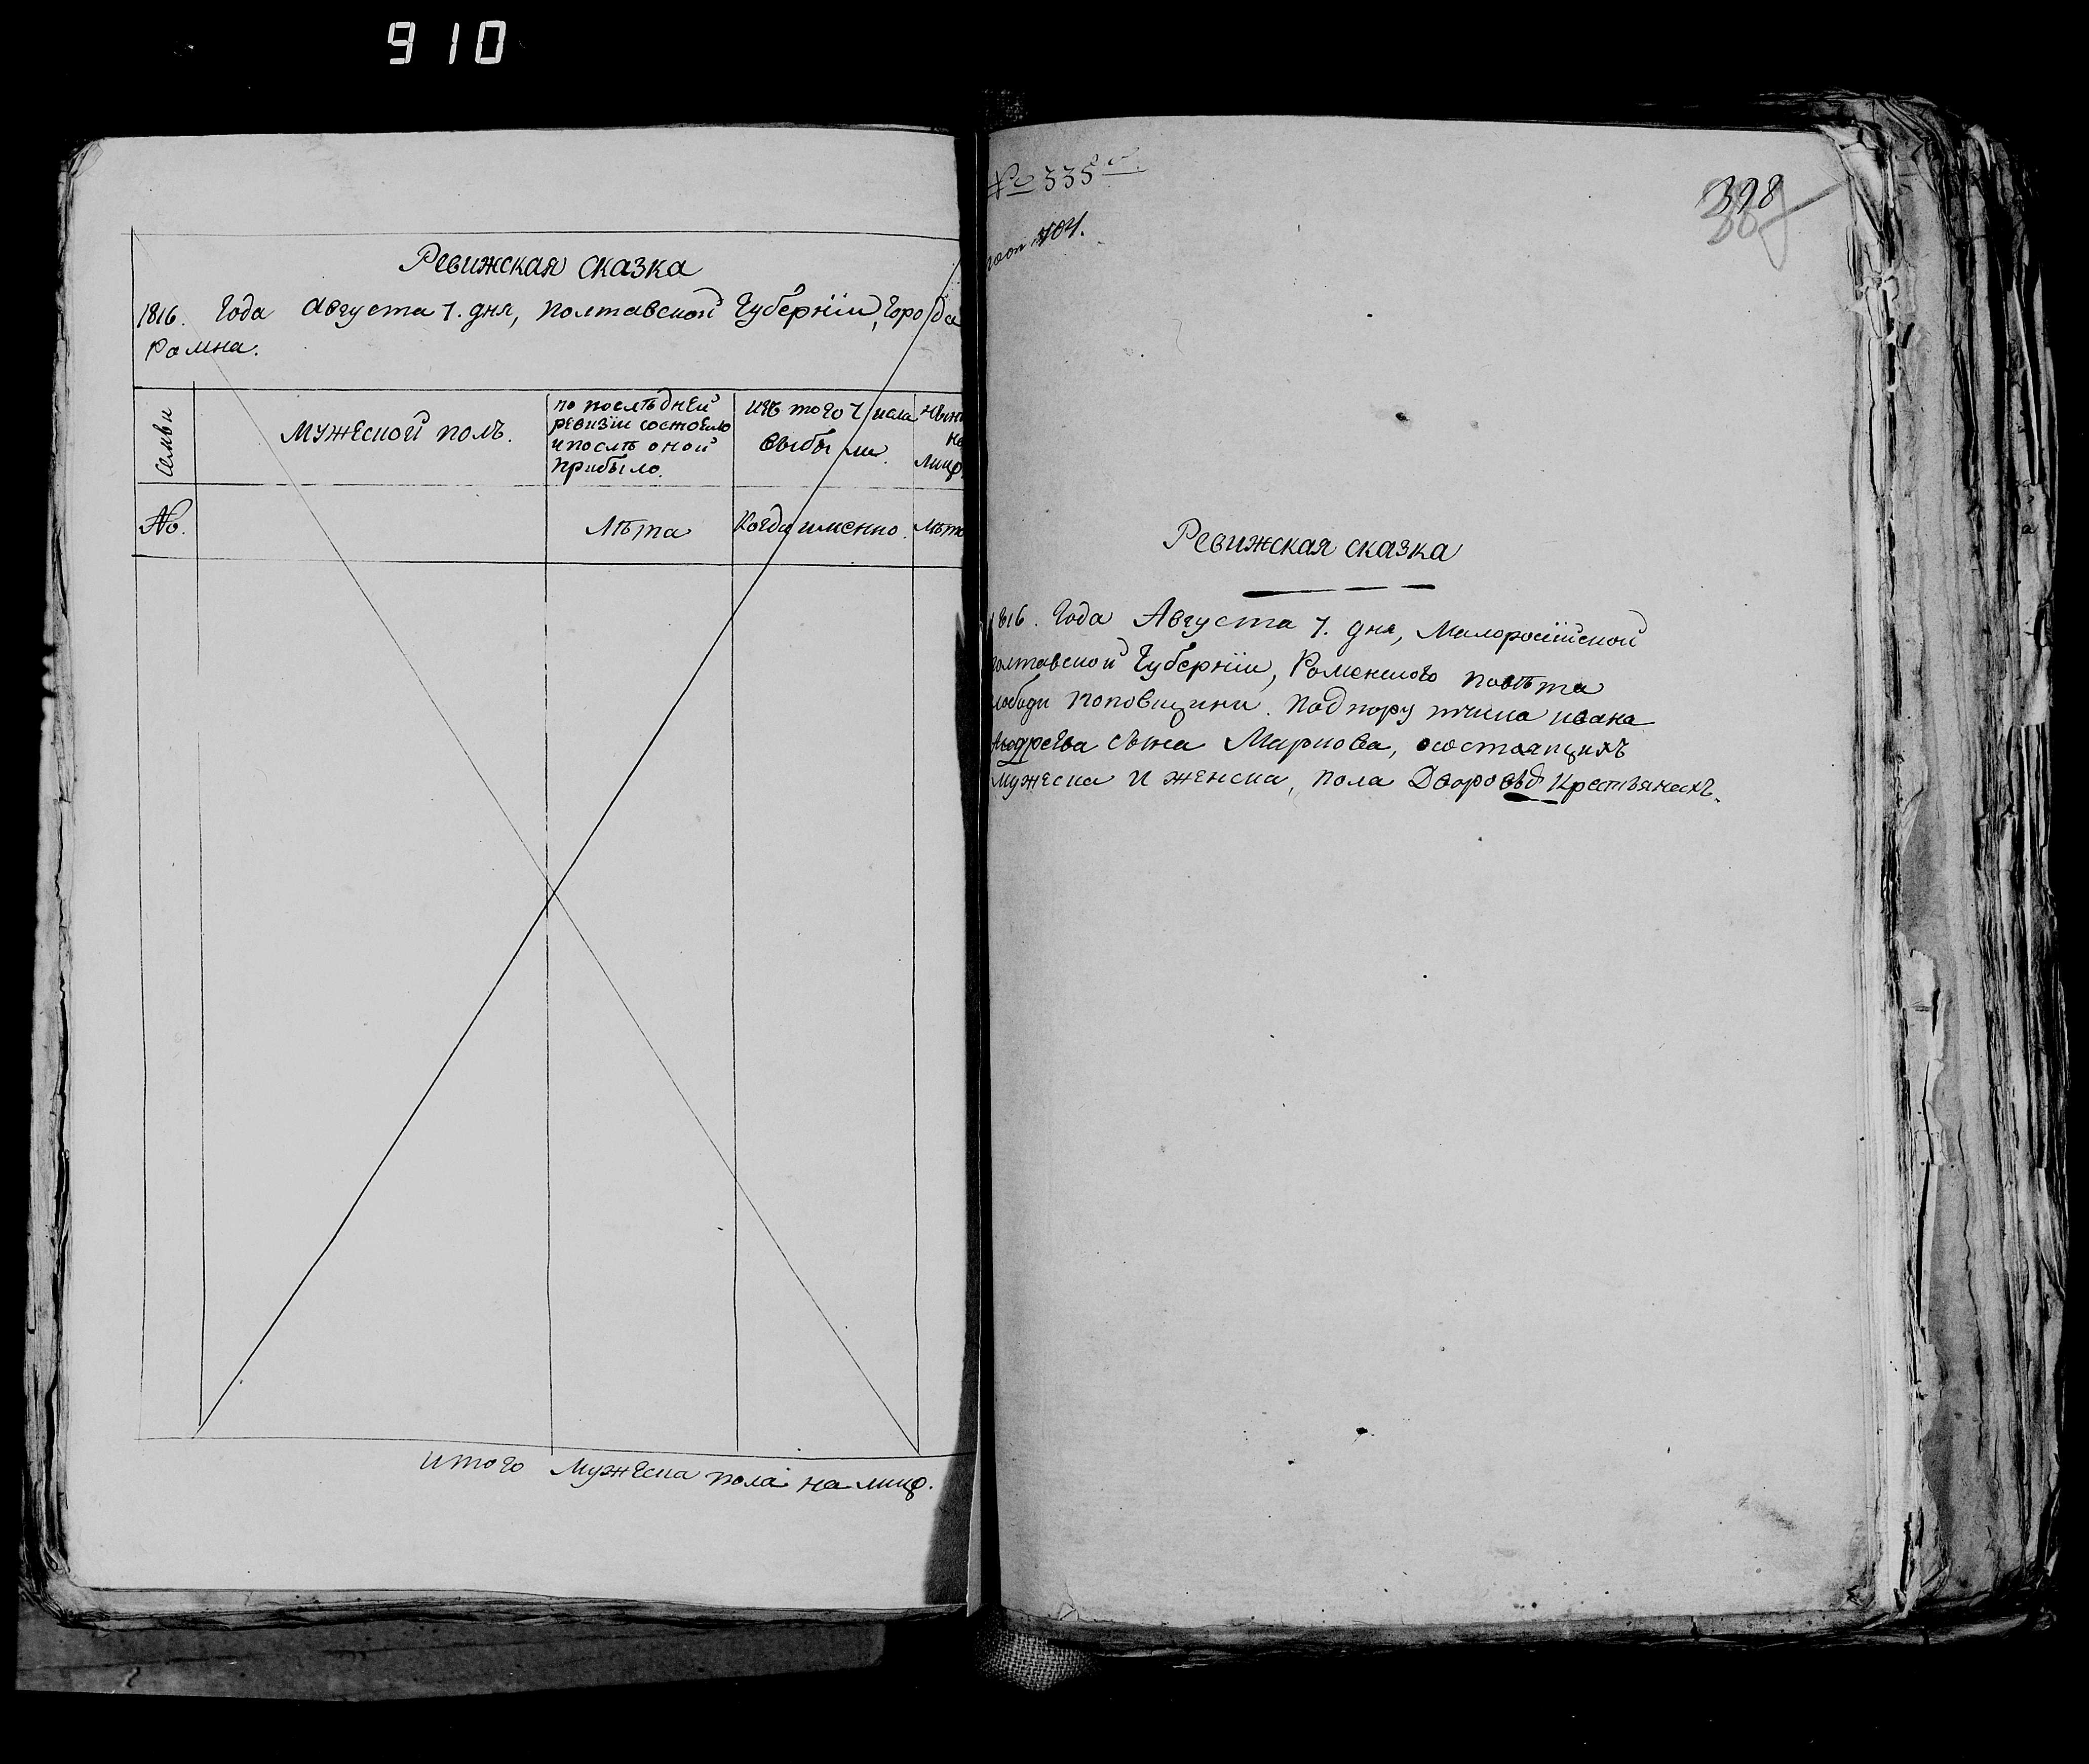 910
Ревижская сказка
1816. Года Августа 7. дня, Полтавской Губерніи, Города
Ромна.
Семьи
Мужеской полъ.
по послѣдней
ревизіи состояло
и послѣ оной
прибыло.
изъ того числа
выбыли.
Лицо
№.
Лѣта
Когда именно.
Лѣта
Итого Мужеска пола на лицо.
№ 335
704.
398
Ревижская сказка
1816. Года Августа 7. дня, Малоросійской
Полтавской Губерніи, Роменского повѣта
слободи Поповщини. Подпорутчика ивана
сына Маркова, осостоящихъ
Мужеска и женска, пола Дворовыхъ Крестьянехъ.